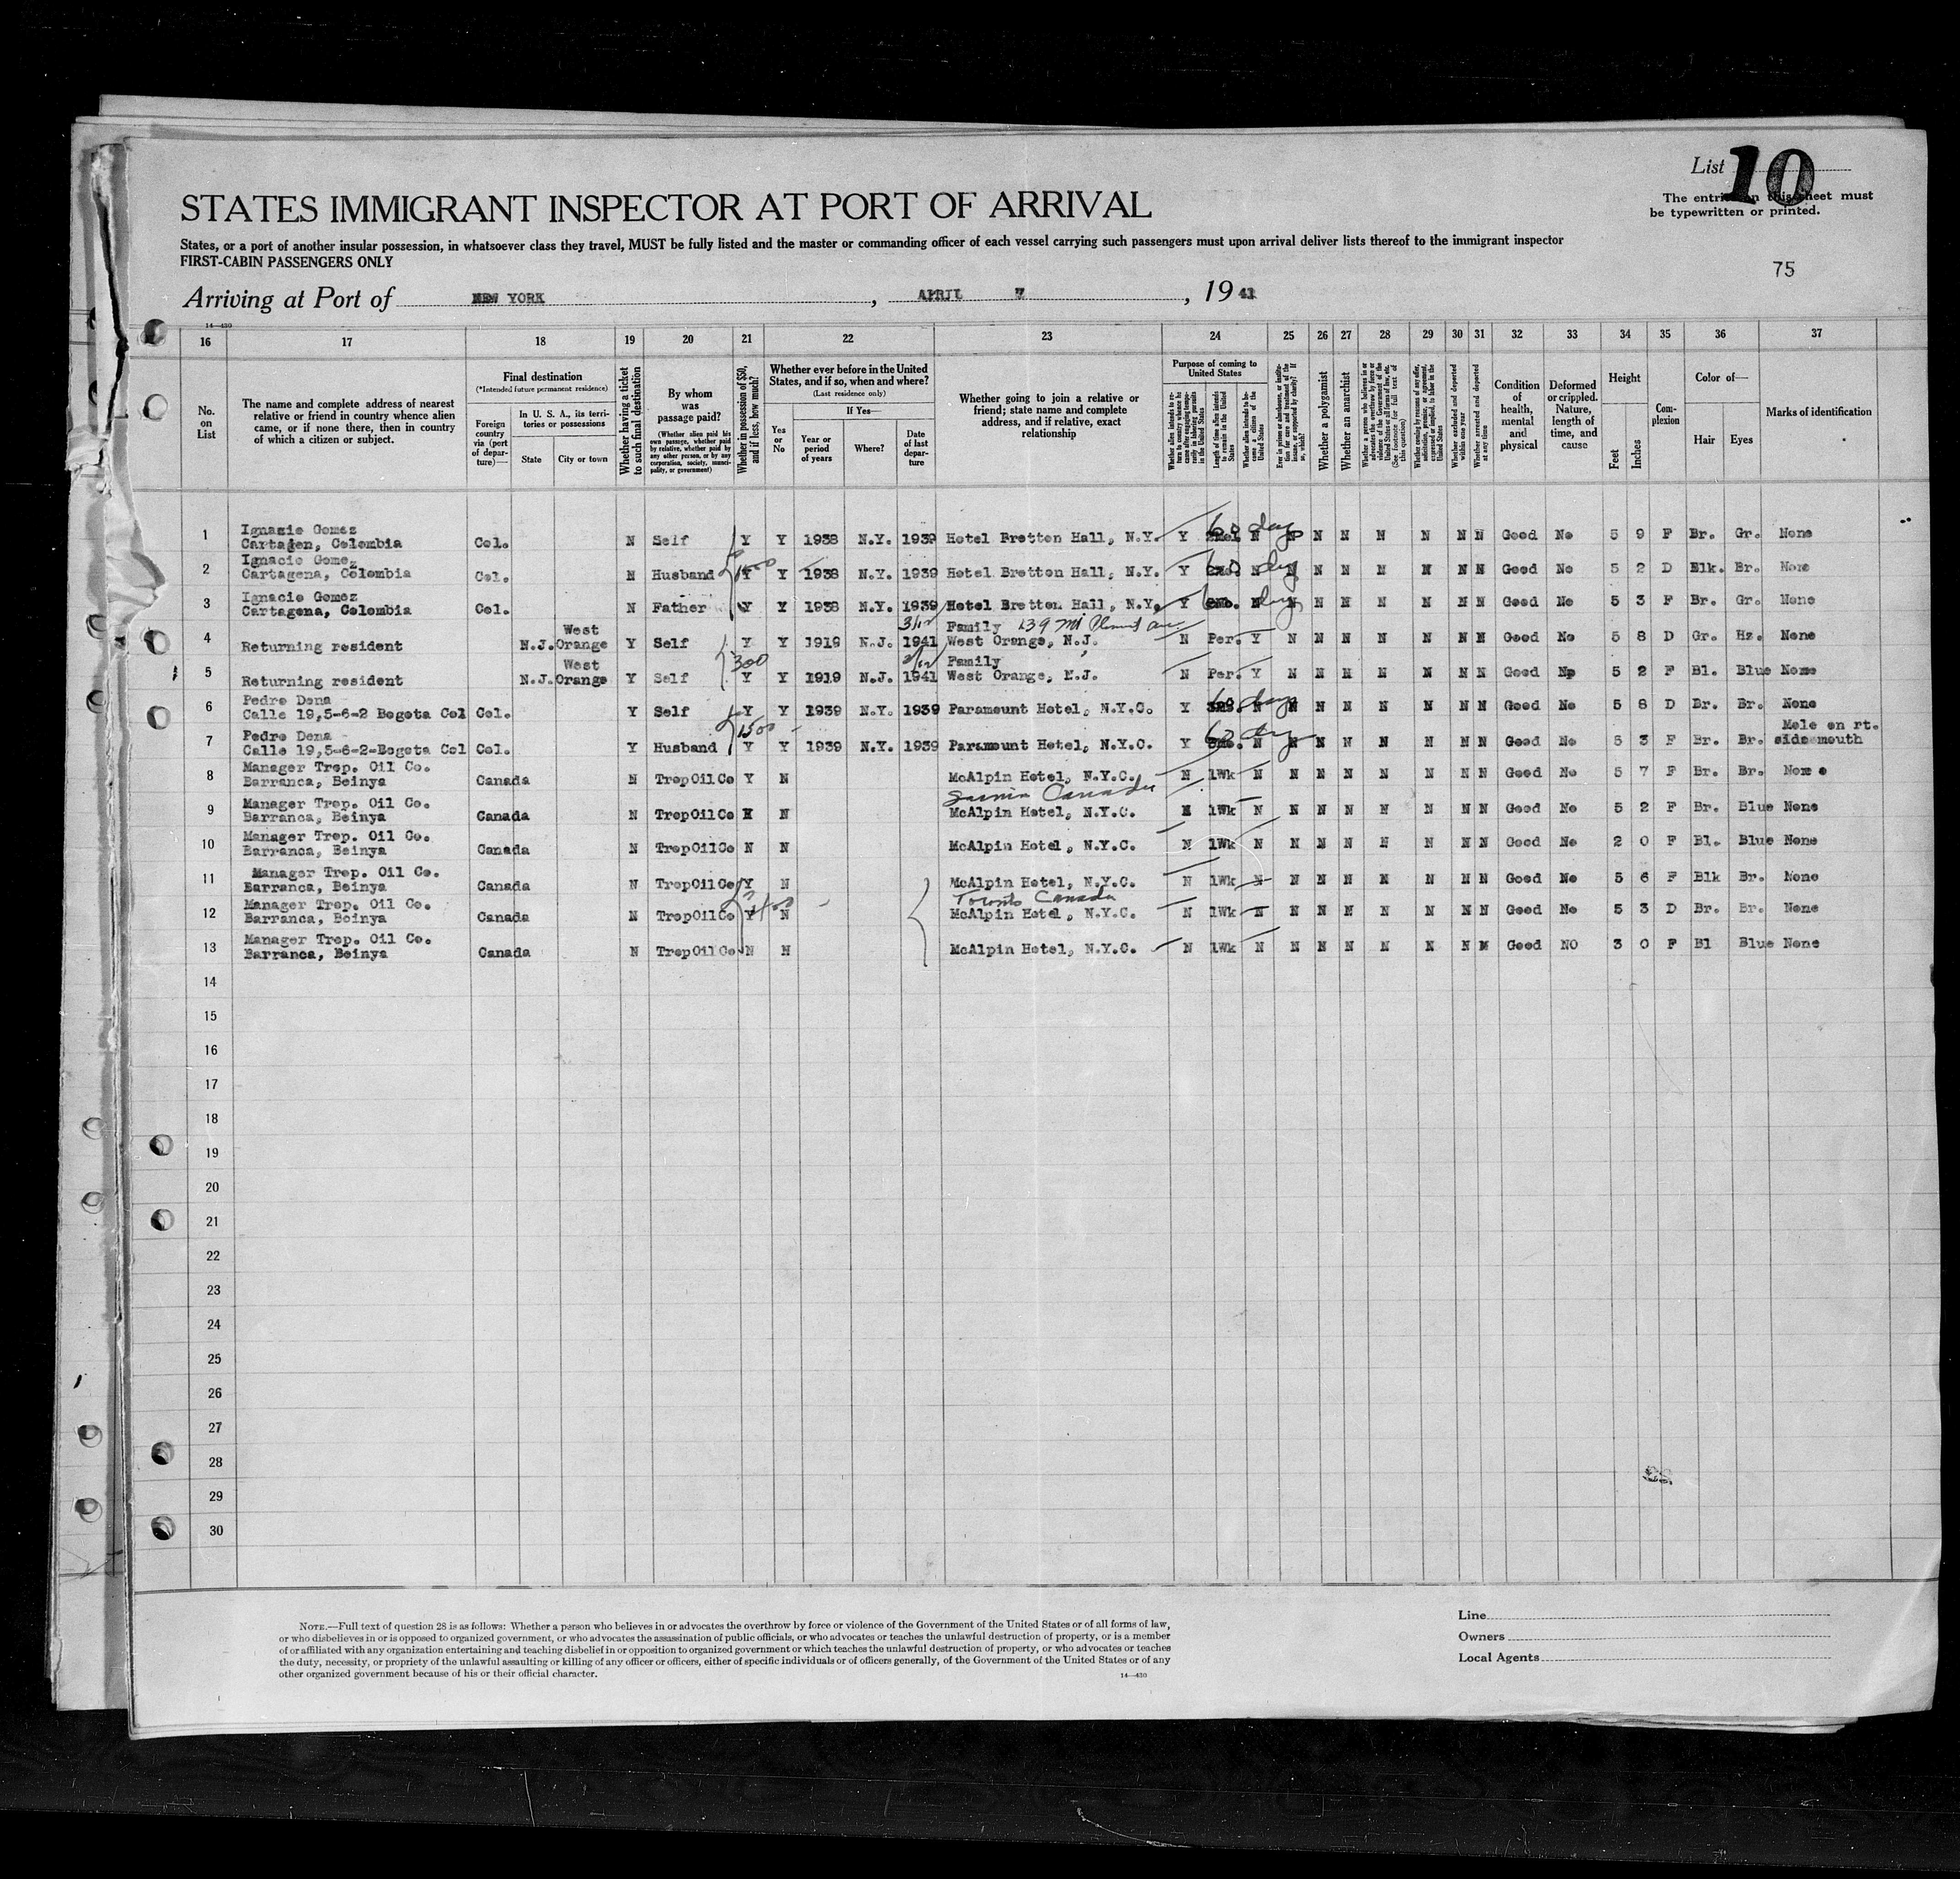 List 10
The entries on this sheet must
be typewritten or printed.
STATES IMMIGRANT INSPECTOR AT PORT OF ARRIVAL
States, or a port of another insular possession, in whatsoever class they travel, MUST be fully listed and the master or commanding officer of each vessel carrying such passengers must upon arrival deliver lists thereof to the immigrant inspector
FIRST-CABIN PASSENGERS ONLY
75
Arriving at Port of NEW YORK, APRIL 7, 1941
14—430
16 17 18 19 20 21 22 23 24 25 26 27 28 29 30 31 32 33 34 35 36 37
No. on List
The name and complete address of nearest relative or friend in country whence alien came, or if none there, then in country of which a citizen or subject.
Final destination
(*Intended future permanent residence)
Foreign country via (port of departure)—
In U. S. A., its territories or possessions
State
City or town
Whether having a ticket to such final destination
By whom was passage paid?
(Whether alien paid his own passage, whether paid by relative, whether paid by any other person, or by any corporation, society, municipality, or government)
Whether in possession of $50, and if less, how much?
Whether ever before in the United States, and if so, when and where?
(Last residence only)
Yes or No
If Yes—
Year or period of years
Where?
Date of last departure
Whether going to join a relative or friend; state name and complete address, and if relative, exact relationship
Purpose of coming to United States
Whether alien intends to return to country whence he came after engaging temporarily in laboring pursuits in the United States
Length of time alien intends to remain in the United States
Whether alien intends to become a citizen of the United States
Ever in prison or almshouse, or institution for care and treatment of the insane, or supported by charity? If so, which?
Whether a polygamist
Whether an anarchist
Whether a person who believes in or advocates the overthrow by force or violence of the Government of the United States or all forms of law, etc. (See footnote for full text of this question)
Whether coming by reasons of any offer, solicitation, promise, or agreement, expressed or implied, to labor in the United States
Whether excluded and deported within one year
Whether arrested and deported at any time
Condition of health, mental and physical
Deformed or crippled. Nature, length of time, and cause
Height
Feet
Inches
Complexion
Color of—
Hair
Eyes
Marks of identification
1 Ignacio Gomez
Cartagen, Colombia Col. N Self Y Y 1938 N.Y. 1939 Hotel Bretton Hall, N.Y. Y 60 days N N N N N N N N Good No 5 9 F Br. Gr. None
2 Ignacio Gomez
Cartagena, Colombia Col. N Husband Y Y 1938 N.Y. 1939 Hotel Bretton Hall, N.Y. Y 60 days N N N N N N N N Good No 5 2 D Blk. Br. None
3 Ignacio Gomez
Cartagena, Colombia Col. N Father Y Y 1938 N.Y. 1939 Hotel Bretton Hall, N.Y. Y 60 days N N N N N N N N Good No 5 3 F Br. Gr. None
West 3/12 Family 139 Mt Pleasant Ave.
4 Returning resident N.J. Orange Y Self Y Y 1919 N.J. 1941 West Orange, N.J. N Per. Y N N N N N N N Good No 5 8 D Gr. Hz. None
West 3/12 Family
5 Returning resident N.J. Orange Y Self 300 Y Y 1919 N.J. 1941 West Orange, N.J. N Per. Y N N N N N N N Good No 5 2 F Bl. Blue None
6 Pedro Dena
Calle 19,5-6-2 Bogota Col Col. Y Self Y Y 1939 N.Y. 1939 Paramount Hotel, N.Y.C. Y 60 days N N N N N N N N Good No 5 8 D Br. Br. None
7 Pedro Dena
Calle 19,5-6-2-Bogota Col Col. Y Husband 1500 Y Y 1939 N.Y. 1939 Paramount Hotel, N.Y.C. Y 60 days N N N N N N N N Good No 5 3 F Br. Br. Mole on rt. side mouth
8 Manager Trop. Oil Co.
Barranca, Beinya Canada N TropOilCo Y N McAlpin Hotel, N.Y.C. N 1Wk N N N N N N N N Good No 5 7 F Br. Br. None
Sarnia Canada
9 Manager Trop. Oil Co.
Barranca, Beinya Canada N TropOilCo N N McAlpin Hotel, N.Y.C. N 1Wk N N N N N N N N Good No 5 2 F Br. Blue None
10 Manager Trop. Oil Co.
Barranca, Beinya Canada N TropOilCo N N McAlpin Hotel, N.Y.C. N 1Wk N N N N N N N N Good No 2 0 F Bl. Blue None
11 Manager Trop. Oil Co.
Barranca, Beinya Canada N TropOilCo Y N McAlpin Hotel, N.Y.C. N 1Wk N N N N N N N N Good No 5 6 F Blk Br. None
Toronto Canada
12 Manager Trop. Oil Co.
Barranca, Beinya Canada N TropOilCo Y N McAlpin Hotel, N.Y.C. N 1Wk N N N N N N N N Good No 5 3 D Br. Br. None
13 Manager Trop. Oil Co.
Barranca, Beinya Canada N TropOilCo N N McAlpin Hotel, N.Y.C. N 1Wk N N N N N N N N Good NO 3 0 F Bl Blue None
14
15
16
17
18
19
20
21
22
23
24
25
26
27
28
29
30
NOTE.—Full text of question 28 is as follows: Whether a person who believes in or advocates the overthrow by force or violence of the Government of the United States or of all forms of law,
or who disbelieves in or is opposed to organized government, or who advocates the assassination of public officials, or who advocates or teaches the unlawful destruction of property, or is a member
of or affiliated with any organization entertaining and teaching disbelief in or opposition to organized government or which teaches the unlawful destruction of property, or who advocates or teaches
the duty, necessity, or propriety of the unlawful assaulting or killing of any officer or officers, either of specific individuals or of officers generally, of the Government of the United States or of any
other organized government because of his or their official character.
14—430
Line
Owners
Local Agents